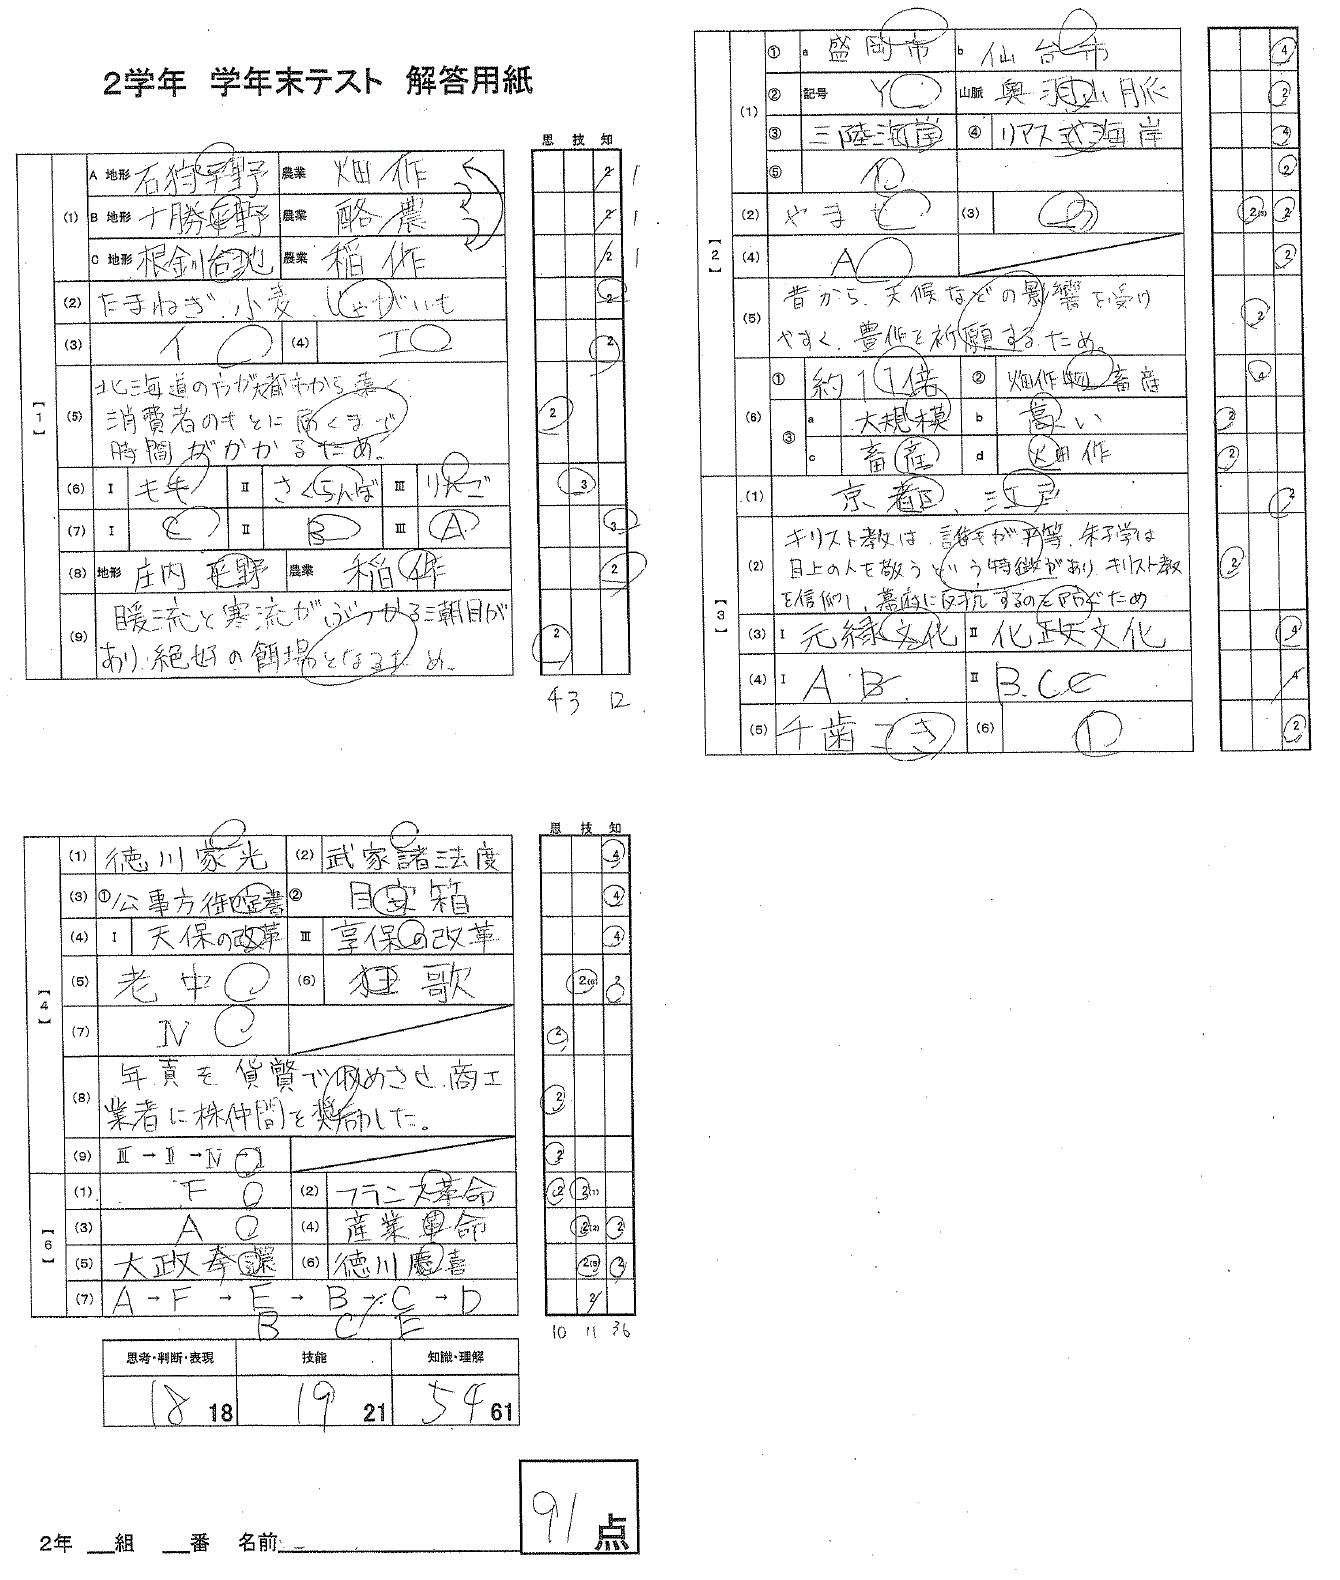 2学年 学年末テスト 解答用紙
思 技 知
【1】
(1) A 地形 石狩平野 農業 畑作 2 1
B 地形 十勝平野 農業 酪農 2 1
C 地形 根釧台地 農業 稲作 2 1
(2) たまねぎ、小麦、じゃがいも 2
(3) イ (4) エ 2
(5) 北海道の方が大都市から遠く
消費者のもとに届くまで
時間がかかるため。 2
(6) Ⅰ もも Ⅱ さくらんぼ Ⅲ りんご 3
(7) Ⅰ C Ⅱ B Ⅲ A 3
(8) 地形 庄内平野 農業 稲作 2
(9) 暖流と寒流がぶつかる潮目が
あり、絶好の餌場となるため。 2
4 3 12
【2】
(1) ① a 盛岡市 b 仙台市 4
② 記号 Y 山脈 奥羽山脈 2
③ 三陸海岸 ④ リアス式海岸 4
⑤ 2
(2) やませ (3) 2 2
(4) A 2
(5) 昔から、天候などの影響を受け
やすく、豊作を祈願するため。 2
(6) ① 約11倍 ② 畑作 畜産
③ a 大規模 b 高い 2
c 畜産 d 畑作 2
【3】
(1) 京都、江戸 2
(2) キリスト教は、誰もが平等、朱子学は
目上の人を敬うという特徴があり、キリスト教
を信仰し、幕府に反抗するのを防ぐため 2
(3) Ⅰ 元禄文化 Ⅱ 化政文化 4
(4) Ⅰ A B Ⅱ B.C 4
(5) 千歯こき (6) 2
思 技 知
【4】
(1) 徳川家光 (2) 武家諸法度 4
(3) ① 公事方御定書 ② 目安箱 4
(4) Ⅰ 天保の改革 Ⅲ 享保の改革 4
(5) 老中 (6) 狂歌 2 2
(7) Ⅳ 2
(8) 年貢を貨幣で収めさせ、商工
業者に株仲間を奨励した。 2
(9) Ⅲ→Ⅱ→Ⅳ→Ⅰ 2
【6】
(1) F (2) フランス革命 2 2
(3) A (4) 産業革命 2 2
(5) 大政奉還 (6) 徳川慶喜 2 2
(7) A→F→E→B→C→D 2
B C E
10 11 36
思考・判断・表現 技能 知識・理解
18 18 19 21 54 61
91点
2年 __組 __番 名前